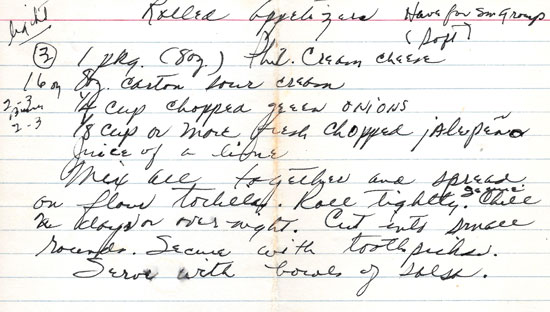 Rolled Appetizers Have for sm Group
(soft)
② 1 pkg. (8oz.) Phil. Cream cheese
16 oz 8oz. carton sour cream
2-3 ¼ cup chopped green ONIONS
2-3 ⅛ cup or more fresh chopped jAlepeño
Juice of a lime
Mix all together and spread
on flour tortellas. Roll tightly, secure Chill
or over night. Cut into small
rounds. Secure with toothpicks.
Serve with bowls of salsa.